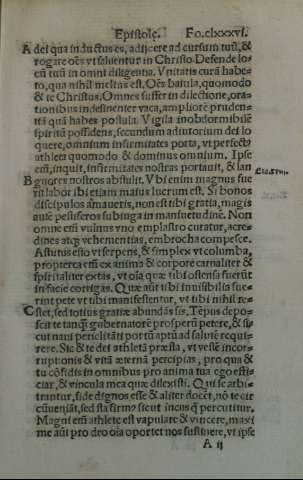 Epistole. Fo.clxxxvi.
A dei qua indutus es, adijcere ad cursum tuū, &
rogare oēs vt saluentur in Christo. Defende lo
cū tuū in omni diligentia. Vnitatis curā habe
to, qua nihil melius est. Oēs baiula, quomodo
& te Christus. Omnes suffer in dilectione, ora
tionibus indesinenter vaca, ampliorē pruden
tiā quā habes postula. Vigila inobdormibilē
spiritū possidens, secundum adiutorium dei lo
quere, omnium infirmitates porta, vt perfectꝰ
athleta quomodo & dominus omnium. Ipse
em̄, inquit, infirmitates nostras portauit, & lan
B guores nostros abstulit. Vbi enim magnus fue
rit labor ibi etiam maius lucrum est. Si bonos
discipulos amaueris, non est tibi gratia, magis
aūt pestiferos subiuga in mansuetudine. Non
omne em̄ vulnus vno emplastro curatur, acre
dines atqꝫ vehementias, embrocha compesce.
Astutus esto vt serpens, & simplex vt columba,
propterea em̄ ex anima & corpore carnaliter &
spiritaliter extas, vt oīa quæ tibi ostensa fuerūt
in facie corrigas. Quæ aūt tibi inuisibilia fue
rint pete vt tibi manifestentur, vt tibi nihil re
C stet, sed totius gratiæ abundās sis. Tēpus depo
scit te tanqꝫ gubernatorē prosperū petere, & si
cut naui periclitāti portū aptū ad salutē requi
rere. Sic & te dei athletā præsta, vt vestē incor
ruptionis & vitā æternā percipias, pro qua &
tu cōfidis in omnibus pro anima tua ego effi
ciar, & vincula mea quæ dilexisti. Qui se arbi
trantur, fide dignos esse & aliter docēt, nō te cir
cūueniāt, sed sta firmꝰ sicut incus q̄ percutitur.
Magni em̄ athletę est vapulare & vincere, maxi
me aūt pro deo oīa oportet nos sustinere, vt ipse
A ij